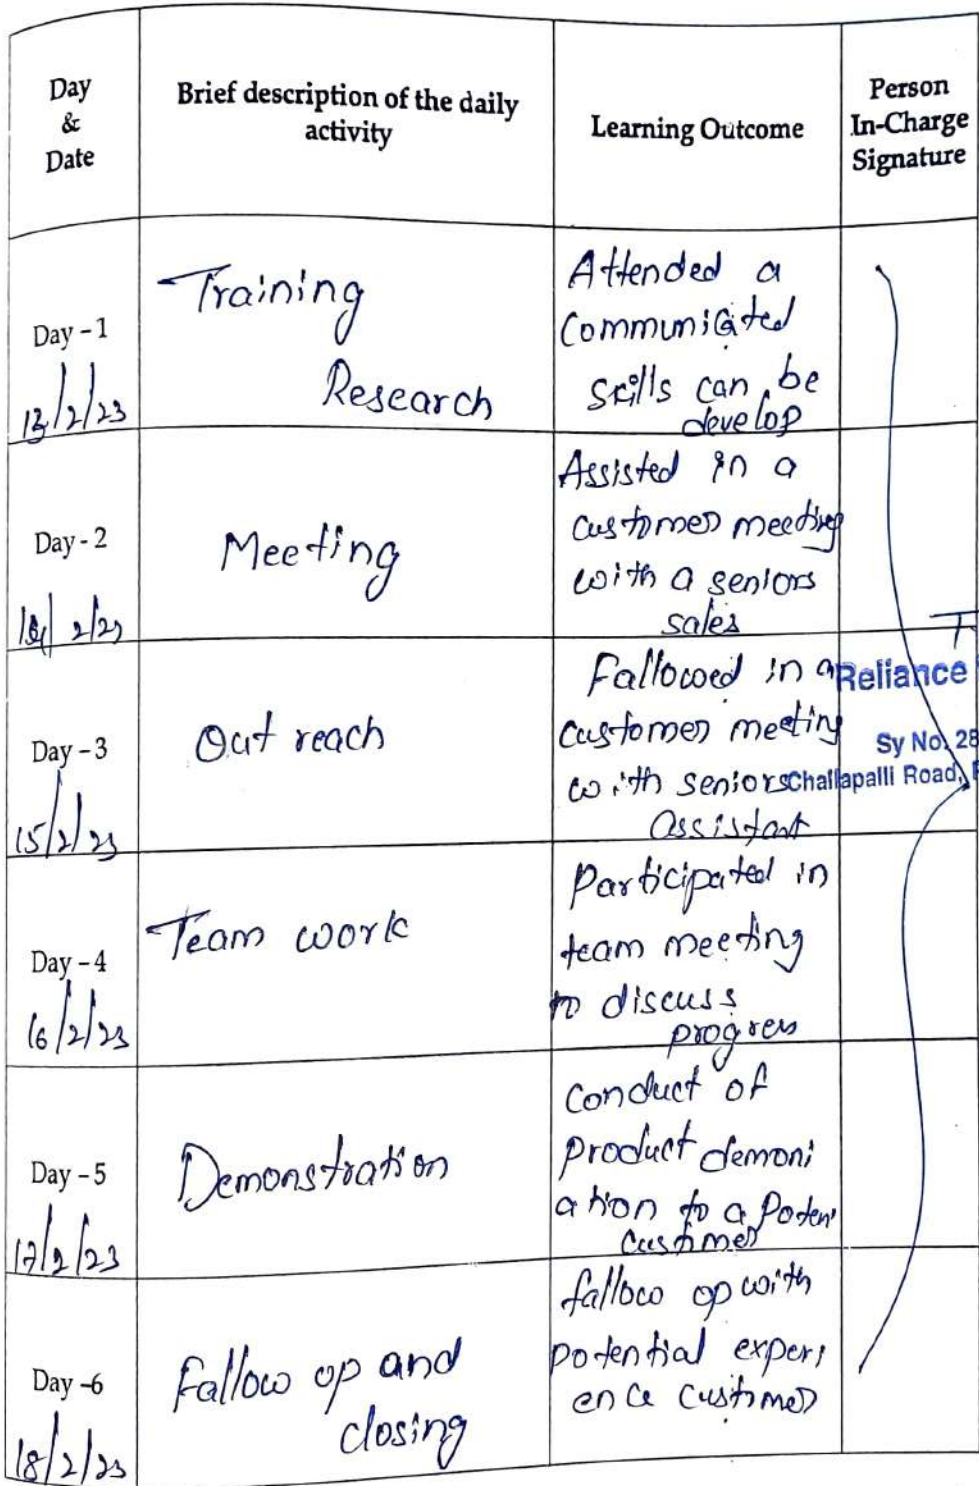 Day
&
Date
Brief description of the daily
activity
Learning Outcome
Person
In-Charge
Signature
Day - 1
13/2/23
Training
Research
Attended a
Communicated
skills can be
develop
Day - 2
14/2/23
Meeting
Assisted in a
customer meeting
with a seniors
sales
Day - 3
15/2/23
Out reach
Fallowed in a
customer meeting
with seniors
assistant
Reliance
Sy No. 28
Challapalli Road,
Day - 4
16/2/23
Team work
Participated in
team meeting
to discuss
progress
Day - 5
17/2/23
Demonstration
Conduct of
product demoni
ation to a Poten
customer
Day -6
18/2/23
Fallow op and
closing
fallow op with
potential experi
ence customer